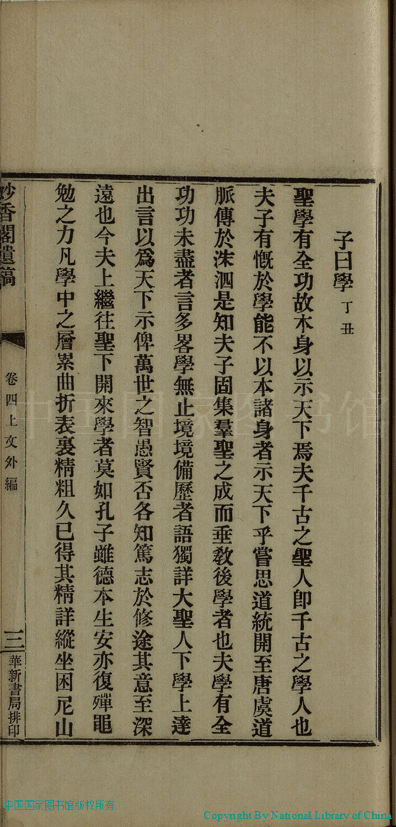 子曰學 丁丑
聖學有全功故本身以示天下焉夫千古之聖人即千古之學人也
夫子有慨於學能不以本諸身者示天下乎嘗思道統開至唐虞道
脈傳於洙泗是知夫子固集羣聖之成而垂教後學者也夫學有全
功功未盡者言多畧學無止境境備歷者語獨詳大聖人下學上達
出言以為天下示俾萬世之智愚賢否各知篤志於修途其意至深
遠也今夫上繼往聖下開來學者莫如孔子雖德本生安亦復殫黽
勉之力凡學中之層累曲折表裏精粗久已得其精詳縱坐困尼山
妙香閣遺稿
卷四上文外編
三
華新書局排印
中国国家图书馆
中国国家图书馆版权所有
Copyright By National Library of China